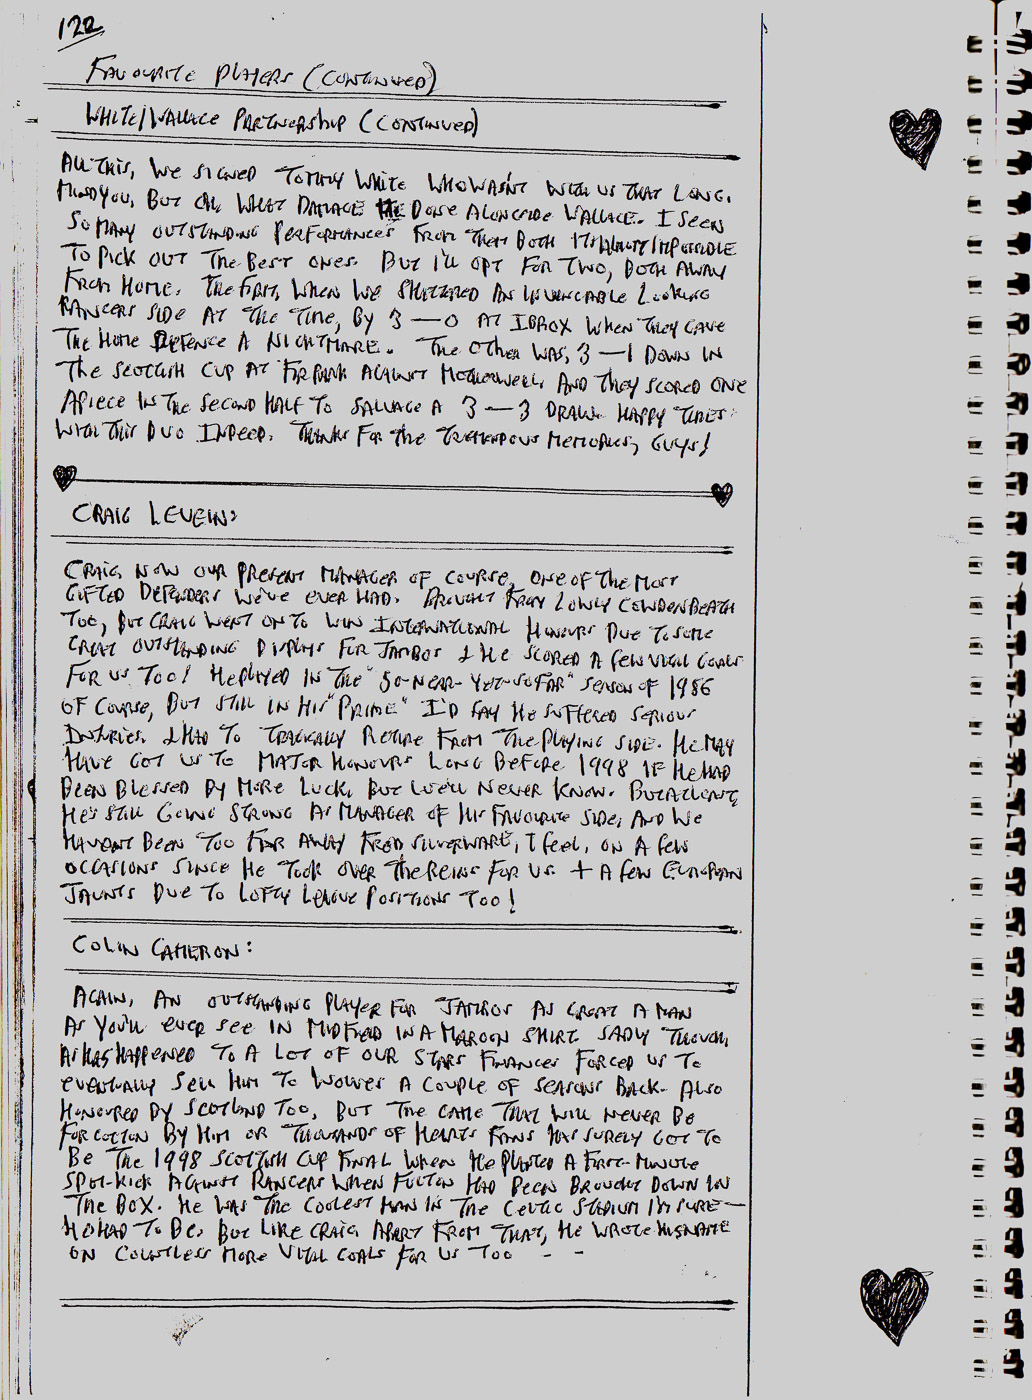 122
FAVOURITE PLAYERS (CONTINUED)
WHITE/WALLACE PARTNERSHIP (CONTINUED)
ALL THIS, WE SIGNED TOMMY WHITE WHO WASN'T WITH US THAT LONG,
MIND YOU, BUT OH, WHAT DAMAGE HE DONE ALONGSIDE WALLACE. I SEEN
SO MANY OUTSTANDING PERFORMANCES FROM THEM BOTH IT'S ALMOST IMPOSSIBLE
TO PICK OUT THE BEST ONES. BUT I'LL OPT FOR TWO, BOTH AWAY
FROM HOME. THE FIRST, WHEN WE SHATTERED AN INVINCABLE LOOKING
RANGERS SIDE AT THE TIME, BY 3 — 0 AT IBROX WHEN THEY GAVE
THE HOME DEFENCE A NIGHTMARE. THE OTHER WAS, 3 — 1 DOWN IN
THE SCOTTISH CUP AT FIR PARK AGAINST MOTHERWELL, AND THEY SCORED ONE
APIECE IN THE SECOND HALF TO SALVAGE A 3 — 3 DRAW. HAPPY TIMES
WITH THIS DUO INDEED. THANKS FOR THE TREMENDOUS MEMORIES, GUYS!
CRAIG LEVEIN:
CRAIG, NOW OUR PRESENT MANAGER OF COURSE, ONE OF THE MOST
GIFTED DEFENDERS WE'VE EVER HAD. BROUGHT FROM LOWLY COWDENBEATH
TOO, BUT CRAIG WENT ON TO WIN INTERNATIONAL HONOURS DUE TO SOME
GREAT OUTSTANDING DISPLAYS FOR JAMBOS & HE SCORED A FEW VITAL GOALS
FOR US TOO! HE PLAYED IN THE "SO-NEAR-YET-SO FAR" SEASON OF 1986
OF COURSE, BUT STILL IN HIS "PRIME" I'D SAY HE SUFFERED SERIOUS
INJURIES & HAD TO TRAGICALLY RETIRE FROM THE PLAYING SIDE. HE MAY
HAVE GOT US TO MAJOR HONOURS LONG BEFORE 1998 IF HE HAD
BEEN BLESSED BY MORE LUCK, BUT WE'LL NEVER KNOW. BUT AT LEAST,
HE'S STILL GOING STRONG AS MANAGER OF HIS FAVOURITE SIDE, AND WE
HAVEN'T BEEN TOO FAR AWAY FROM SILVERWARE, I FEEL, ON A FEW
OCCASIONS SINCE HE TOOK OVER THE REINS FOR US + A FEW EUROPEAN
JAUNTS DUE TO LOFTY LEAGUE POSITIONS TOO!
COLIN CAMERON:
AGAIN, AN OUTSTANDING PLAYER FOR JAMBOS AS GREAT A MAN
AS YOU'LL EVER SEE IN MIDFIELD IN A MAROON SHIRT. SADLY THOUGH,
AS HAS HAPPENED TO A LOT OF OUR STARS FINANCES FORCED US TO
EVENTUALLY SELL HIM TO WOLVES A COUPLE OF SEASONS BACK. ALSO
HONOURED BY SCOTLAND TOO, BUT THE GAME THAT WILL NEVER BE
FORGOTTON BY HIM OR THOUSANDS OF HEARTS FANS HAS SURELY GOT TO
BE THE 1998 SCOTTISH CUP FINAL WHEN HE PLANTED A FIRST-MINUTE
SPOT-KICK AGAINST RANGERS WHEN FULTON HAD BEEN BROUGHT DOWN IN
THE BOX. HE WAS THE COOLEST MAN IN THE CELTIC STADIUM I'M SURE —
HE HAD TO BE, BUT LIKE CRAIG, APART FROM THAT, HE WROTE HIS NAME
ON COUNTLESS MORE VITAL GOALS FOR US TOO - -